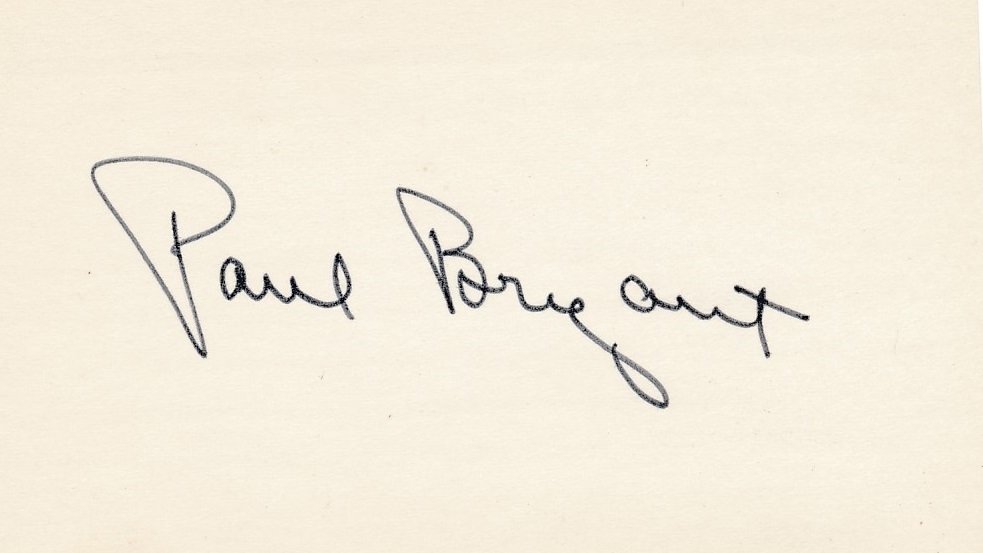 Paul Bryant